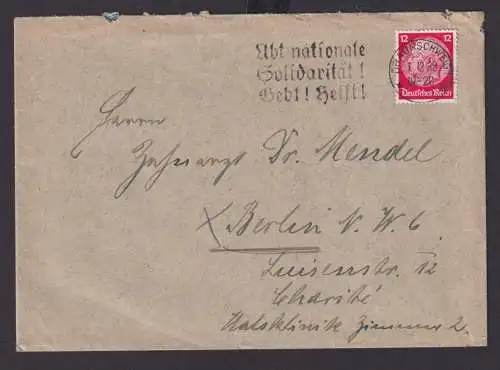 Übt nationale
Solidarität!
Gebt! Helft!
12 12
BRAUNSCHWEIG
Deutsches Reich
Herrn
Zahnarzt Dr. Mendel
Berlin N. W. 6
Luisenstr. 12
Charité
Halsklinik Zimmer 2.